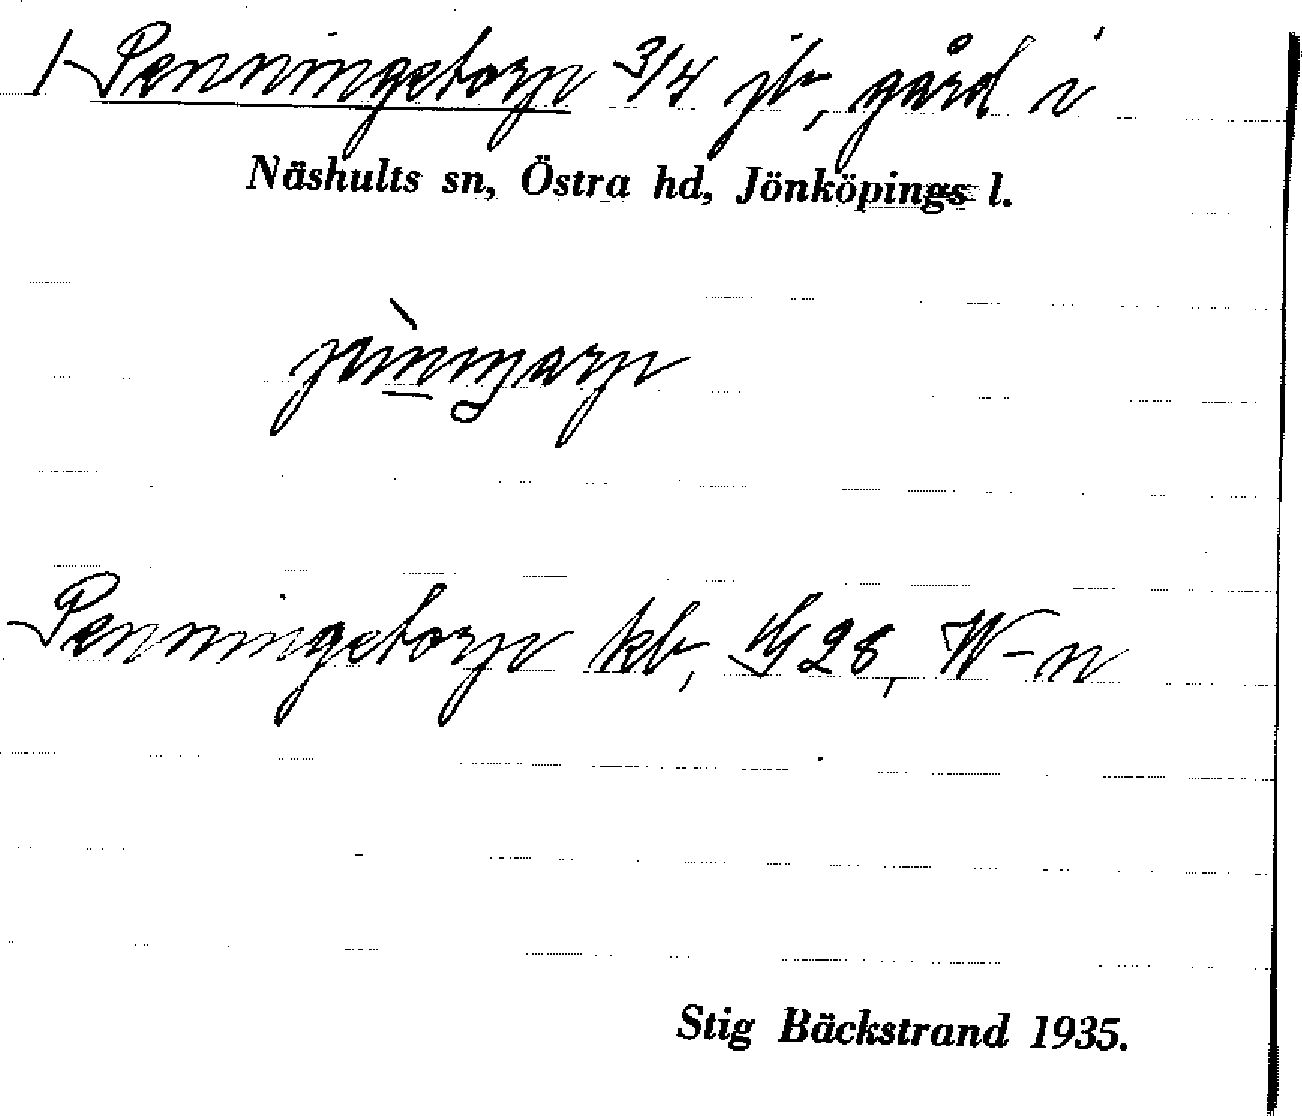 1 Penningetorp 3/4 jb, gård i
Näshults sn, Östra hd, Jönköpings l.
Penningetorp kb, 28, W-n
Stig Bäckstrand 1935.